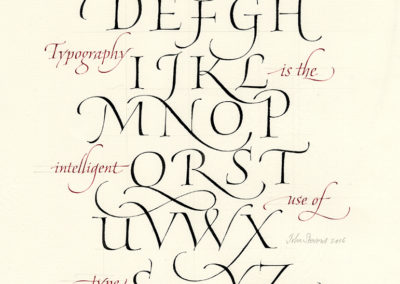 DEFGH
Typography
IJKL is the
MNOP
intelligent QRST
use of
UVWX
John Stevens 2016
type YZ